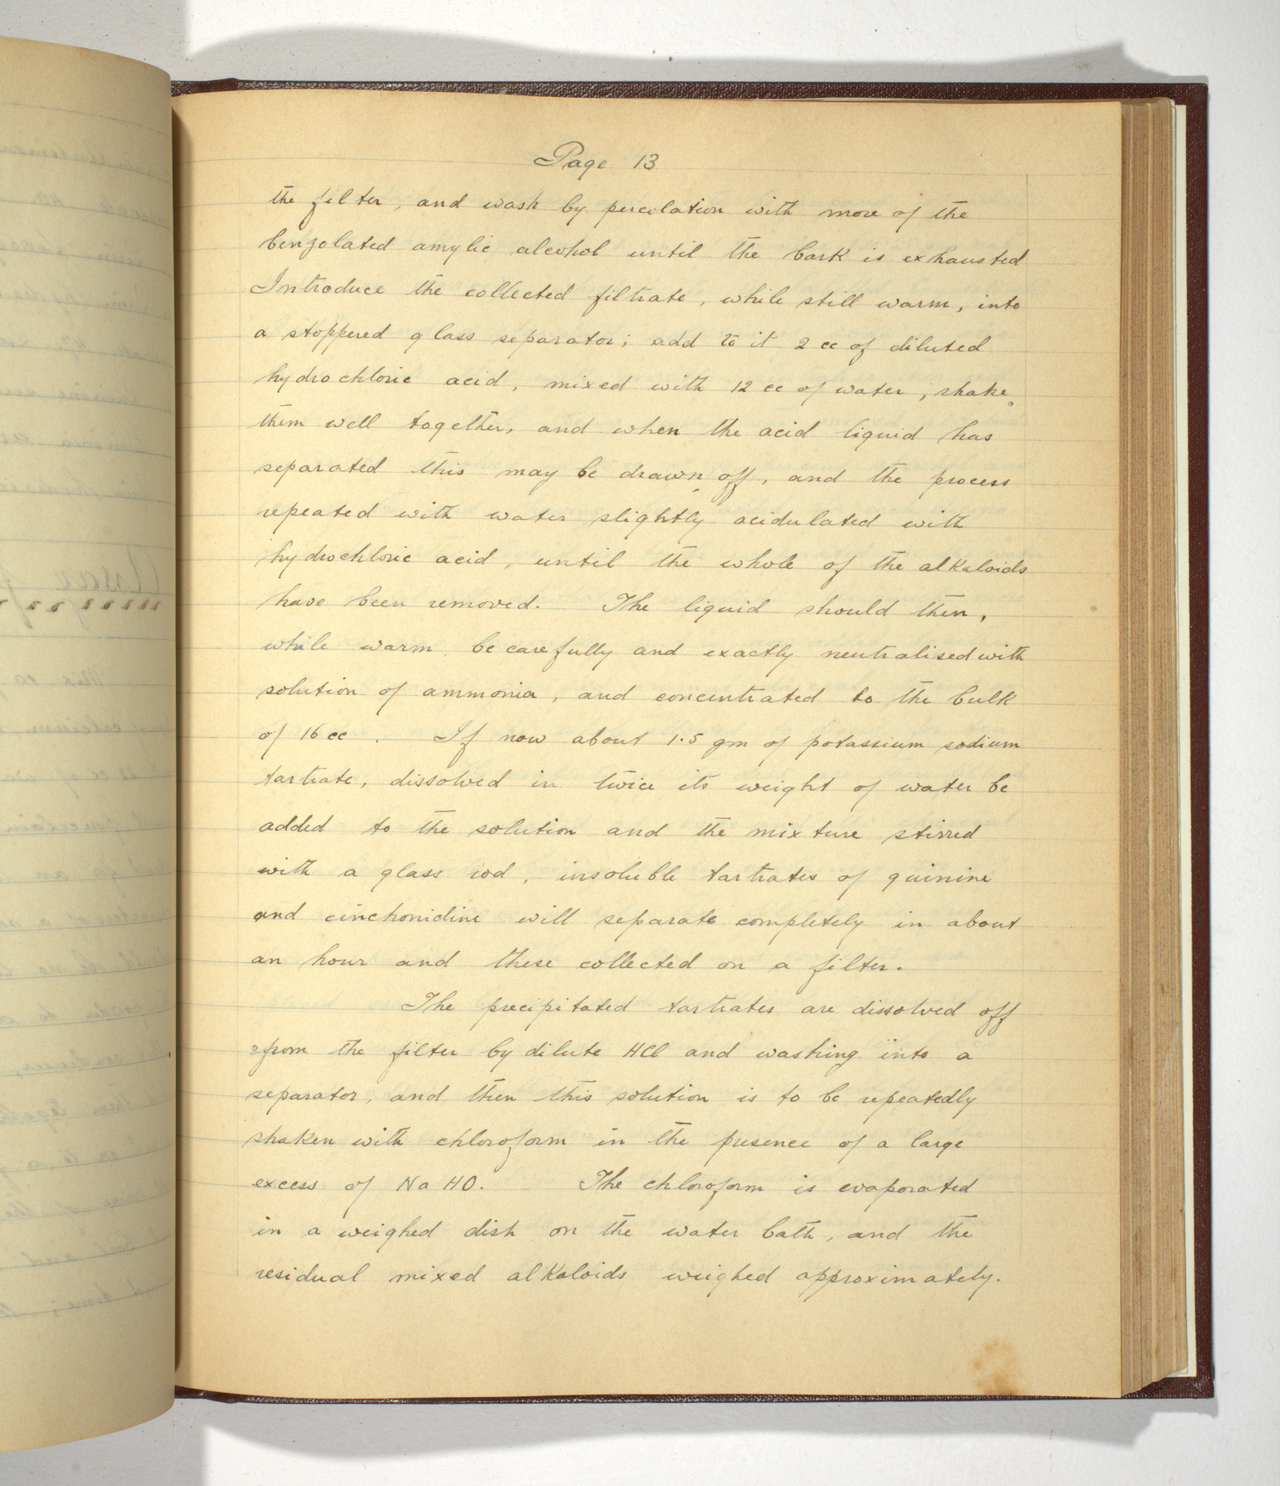 Page 13
the filter, and wash by percolation with more of the
benzolated amylic alcohol until the bark is exhausted
Introduce the collected filtrate, while still warm, into
a stoppered glass separator; add to it 2 cc of diluted
hydrochloric acid, mixed with 12 cc of water, shake
them well together, and when the acid liquid has
separated this may be drawn off, and the process
repeated with water slightly acidulated with
hydrochloric acid, until the whole of the alkaloids
have been removed. The liquid should then,
while warm be carefully and exactly neutralised with
solution of ammonia, and concentrated to the bulk
of 16 cc . If now about 1.5 gm of potassium sodium
tartrate, dissolved in twice its weight of water be
added to the solution and the mixture stirred
with a glass rod, insoluble tartrates of quinine
and cinchonidine will separate completely in about
an hour and these collected on a filter.
The precipitated tartrates are dissolved off
from the filter by dilute HCl and washing into a
separator, and then this solution is to be repeatedly
shaken with chloroform in the presence of a large
excess of NaHO. The chloroform is evaporated
in a weighed dish on the water bath, and the
residual mixed alkaloids weighed approximately.